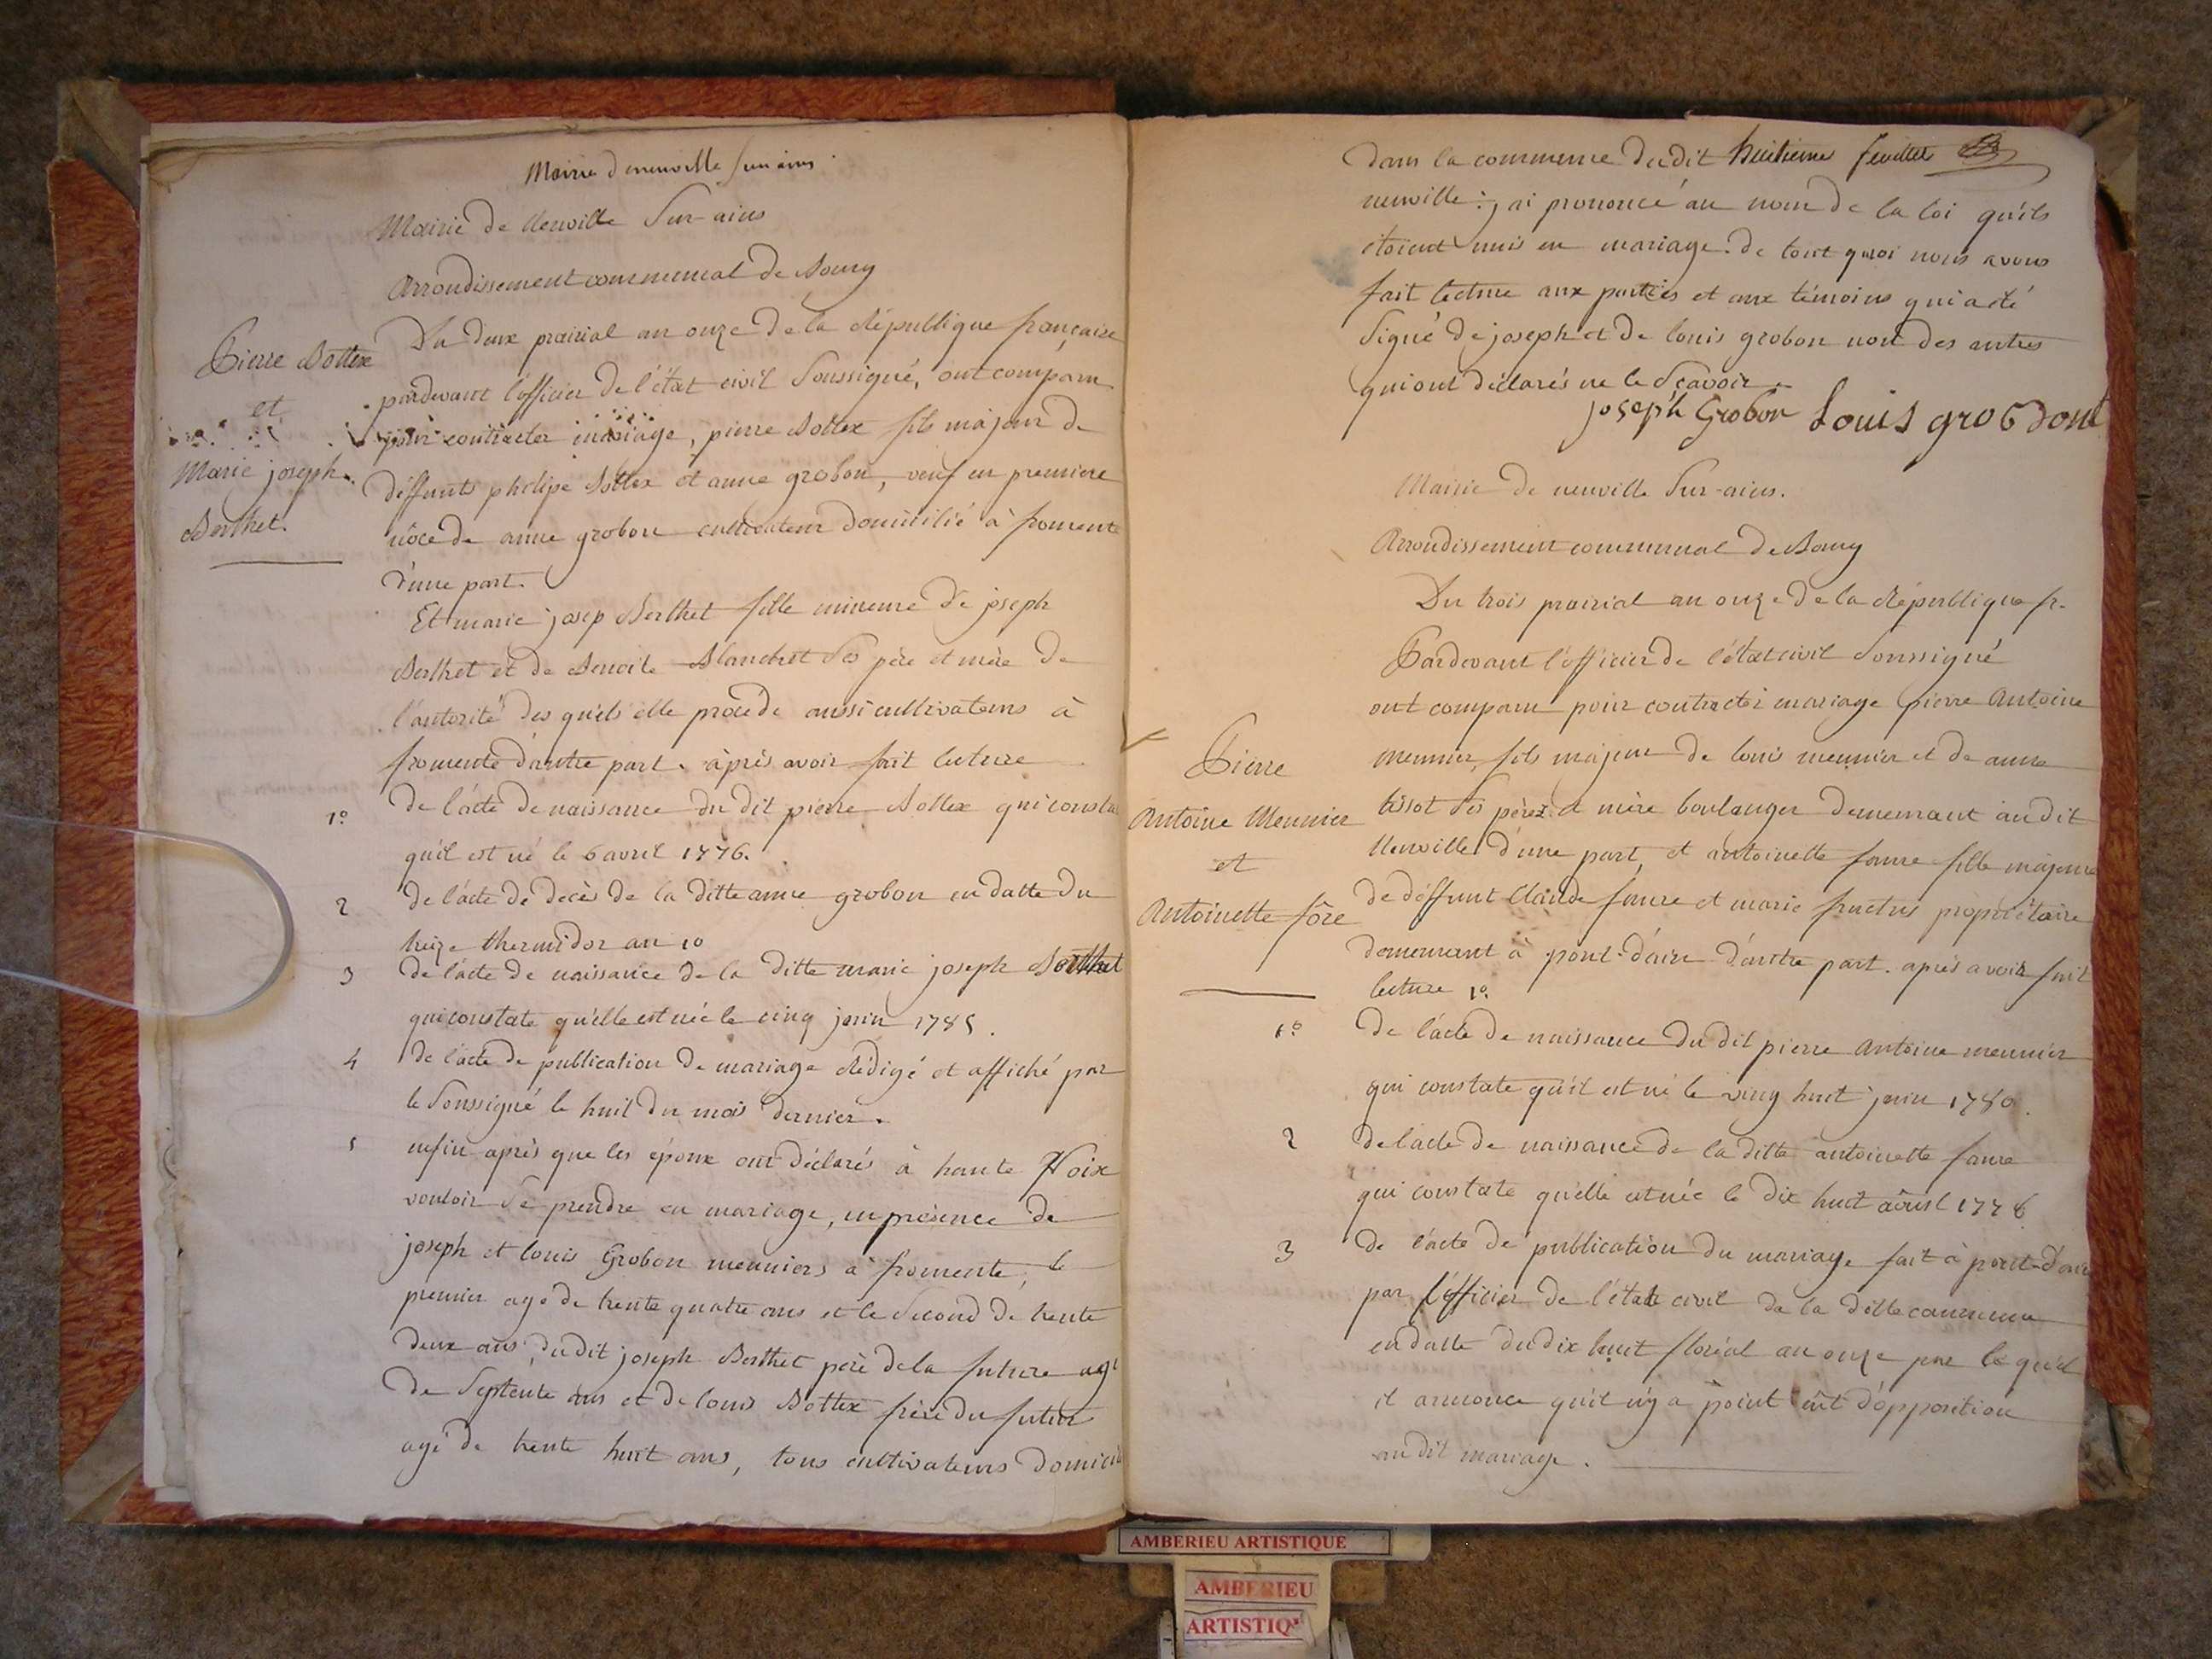 Mairie de neuville sur ains
Mairie de Neuville Sur-ains
Arrondissement communal de Bourg
Pierre Bottex
et
Marie joseph
Berthet.
Du deux prairial an onze de la République française
pardevant l'officier de l'état civil Soussigné, ont comparu
pour contracter mariage, pierre Bottex fils majeur de
déffunts philipe Bottex et anne grobon, veuf en premiere
nôce de anne grobon cultivateur domicilié à fromente
d'une part.
Et marie josep Berthet fille mineure de joseph
Berthet et de Benoite Blanchet ses père et mère de
l'autorité des quels elle procède aussi cultivateurs à
fromente d'autre part. après avoir fait lecture
1º de l'acte de naissance du dit pierre Bottex qui consta
qu'il est né le 6 avril 1776.
2 de l'acte de decès de la ditte anne grobon en datte du
treize thermidor an 10
3 de l'acte de naissance de la ditte marie joseph Berthet
qui constate qu'elle est née le cinq juin 1785.
4 de l'acte de publication de mariage Rédigé et affiché par
le Soussigné le huit du mois dernier.
5 enfin après que les époux ont déclarés à haute Voix
vouloir se prendre en mariage, en présence de
joseph et louis Grobon meuniers à fromente, le
premier agé de trente quatre ans et le Second de trente
deux ans, du dit joseph Berthet père de la future agé
de Septente ans et de louis Bottex frère du futur
agé de trente huit ans, tous cultivateurs domicilié
dans la commune du dit huitieme feuillet
neuville: j'ai prononcé au nom de la loi qu'ils
étoient unis en mariage. de tout quoi nous avons
fait lecture aux parties et aux témoins qui a été
Signé de joseph et de louis grobon non des autres
qui ont déclarés ne le Sçavoir.
joseph Grobon Louis grobdont
Mairie de neuville Sur-ains.
Arrondissement communal de Bourg
Du trois prairial an onze de la République fr.
Pardevant l'officier de l'état civil Soussigné
ont comparu pour contracter mariage pierre Antoine
Pierre
Antoine Meunier
et
Antoinette fôre
meunier, fils majeur de louis meunier et de anne
tissot ses pères et mère boulanger demeurant au dit
Neuville d'une part, et antoinette faure fille majeure
de déffunt Claude faure et marie fructus propriétaire
demeurant à pont-d'ain d'autre part. après avoir fait
lecture 1º
1º de l'acte de naissance du dit pierre Antoine meunier
qui constate qu'il est né le ving huit juin 1780.
2 de l'acte de naissance de la ditte antoinette faure
qui constate qu'elle est née le dix huit avril 1778
3 de l'acte de publication du mariage fait à pont-d'ain
par l'officier de l'état civil de la ditte commune
en datte du dix huit floréal an onze par le quel
il annonce qu'il n'y a point eût d'opposition
au dit mariage.
AMBERIEU ARTISTIQUE
AMBERIEU
ARTISTIQ